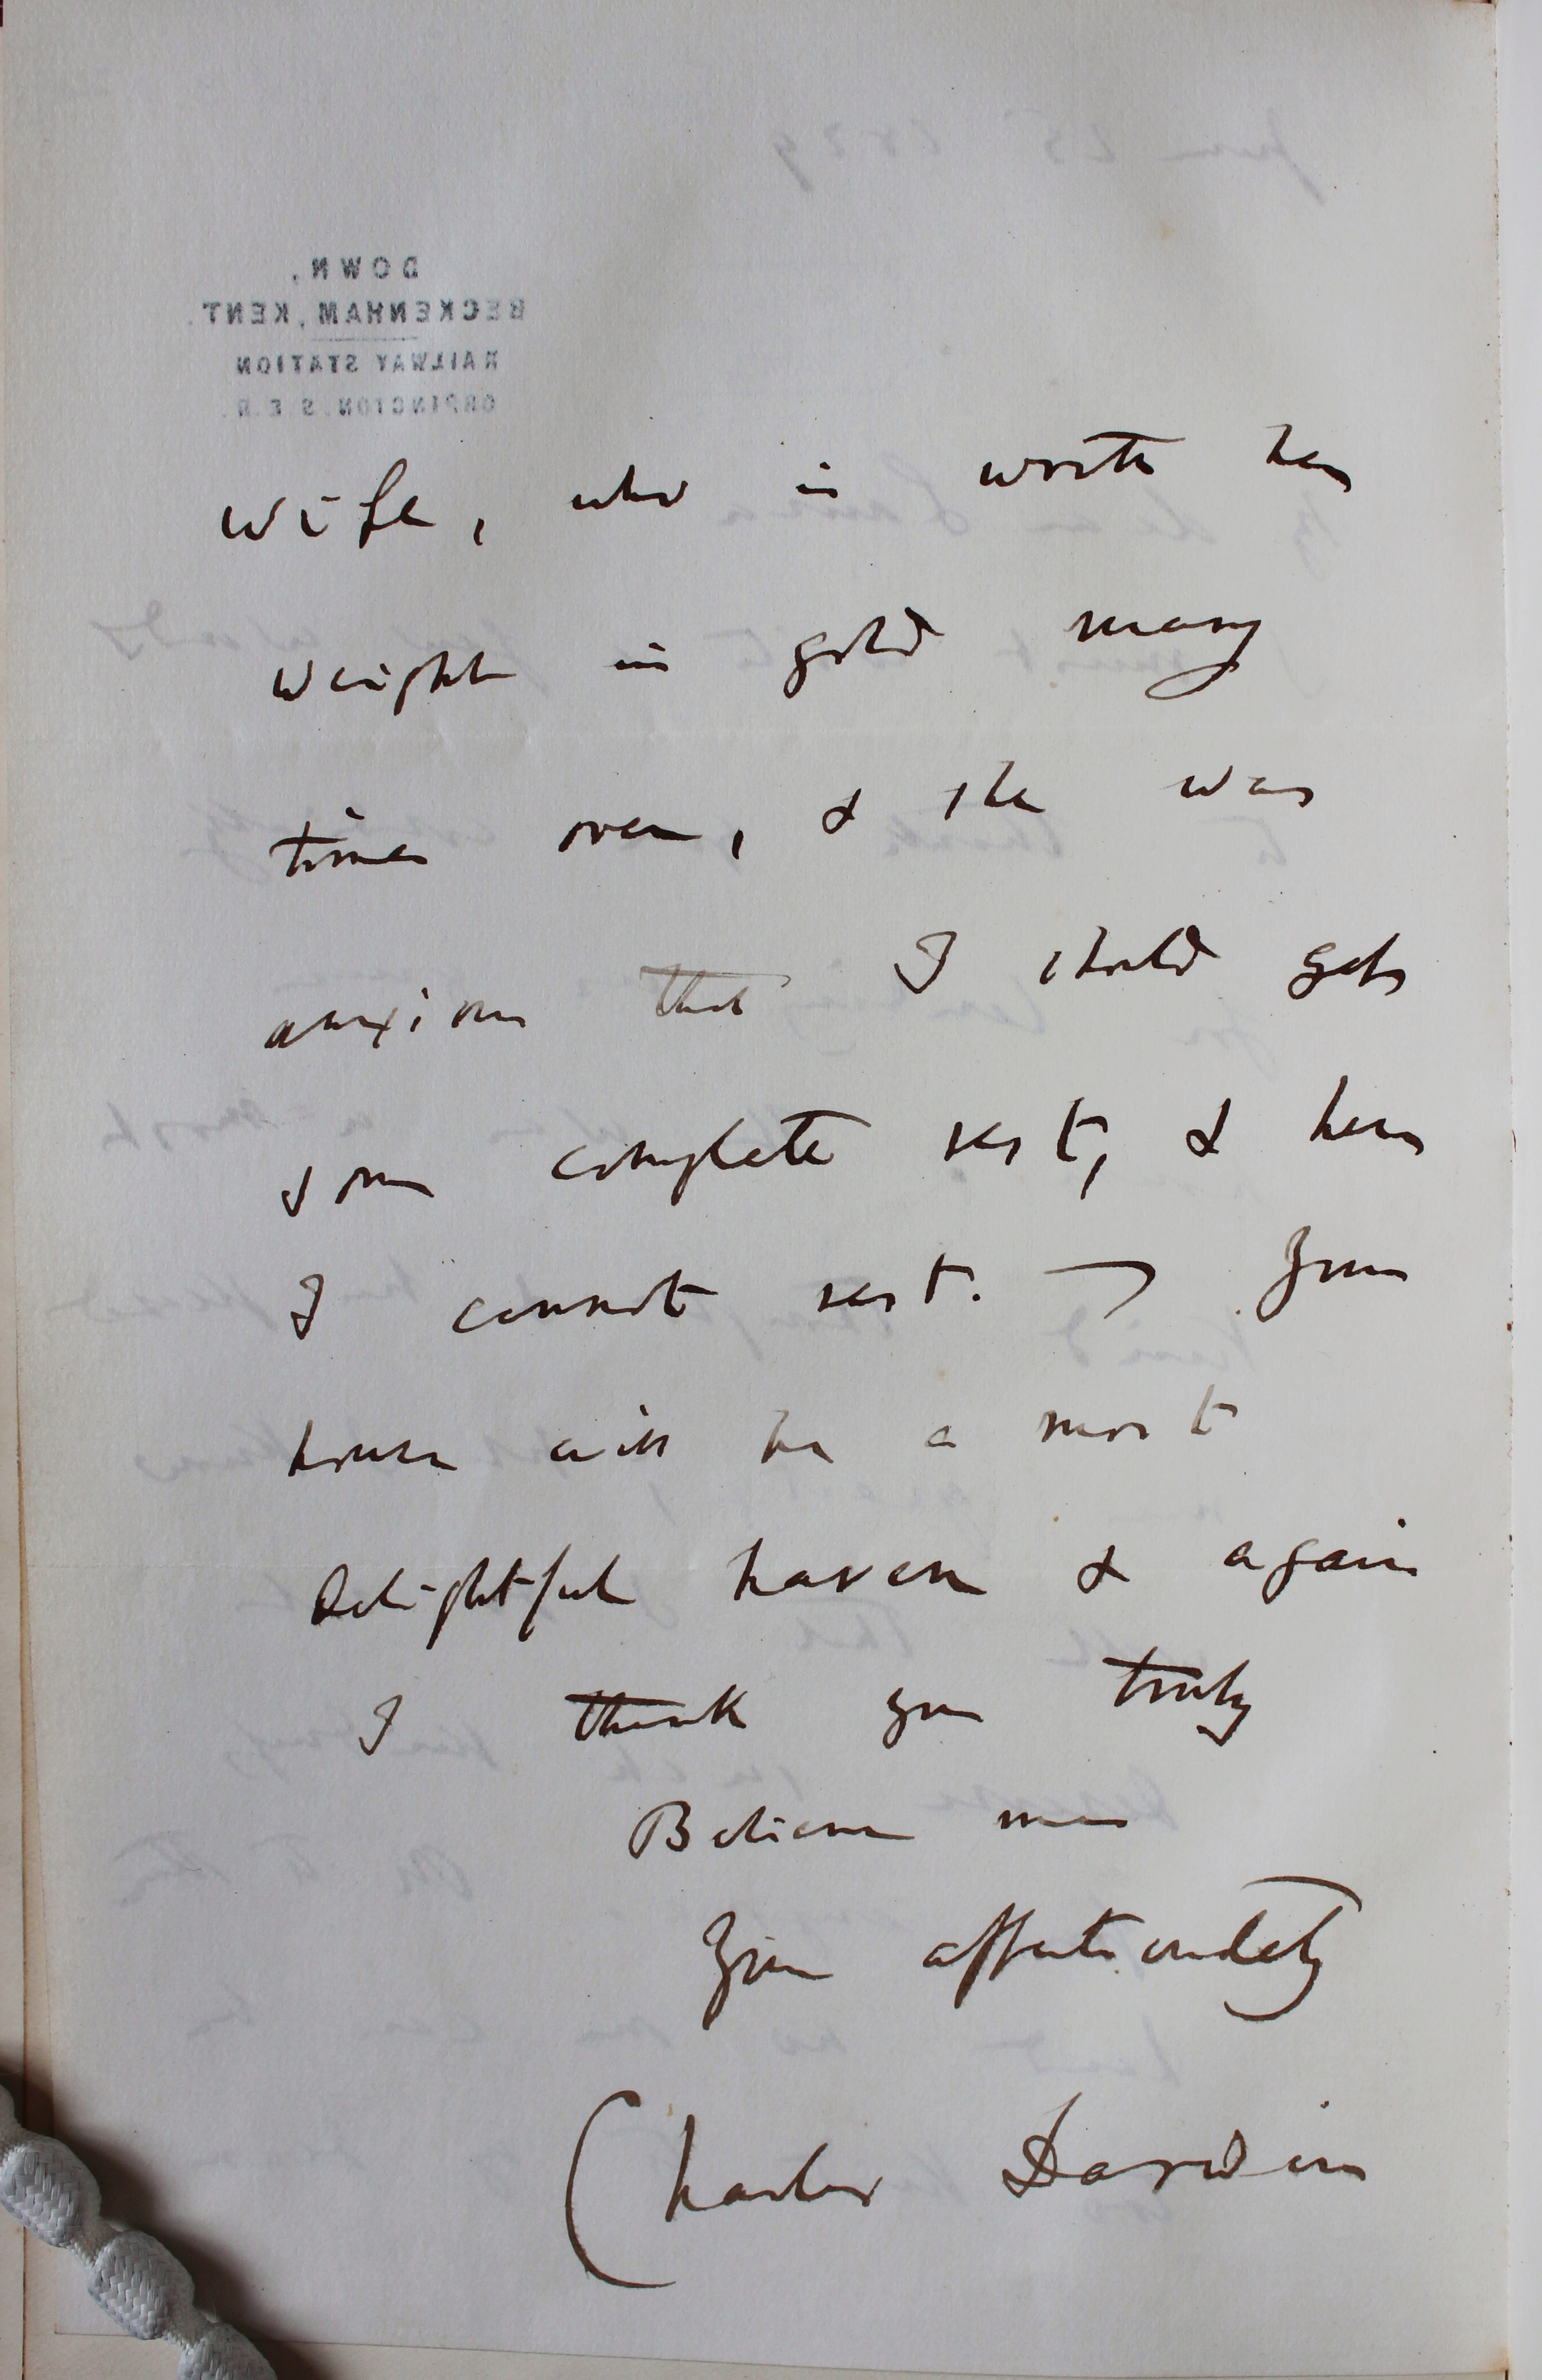 DOWN,
BECKENHAM, KENT.
RAILWAY STATION
ORPINGTON. S.E.R.
wife, who is worth her
weight in gold many
times over, & she was
anxious that I should get
some complete rest, & here
I cannot rest. — Your
house will be a most
delightful haven & again
I thank you truly
Believe me
Yours affectionately
Charles Darwin